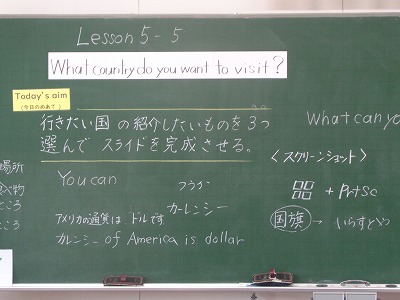 Lesson 5-5
What country do you want to visit?
Today's aim
(今日のめあて)
行きたい国の紹介したいものを3つ
選んで スライドを完成させる。
What can yo
場所
食べ物
ところ
ころ
You can
フラッグ
カーレンシー
アメリカの通貨は ドルです
カレンシー of America is dollar
<スクリーンショット>
+ PrtSc
国旗 → いらすとや